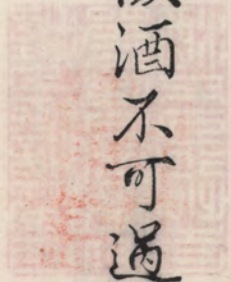 酒不可過